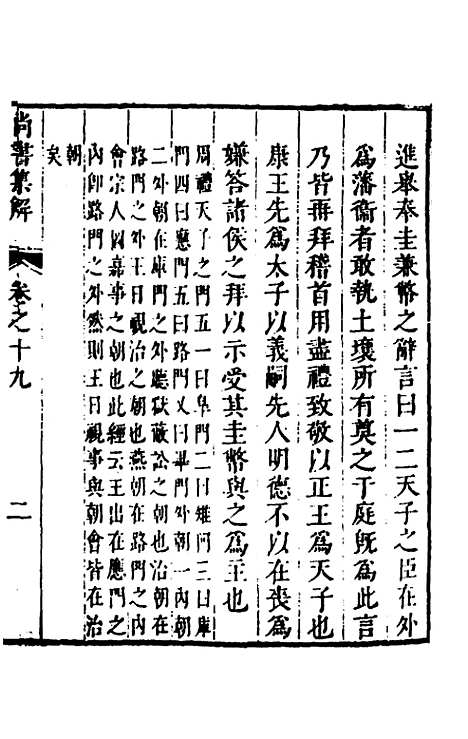 進舉奉圭兼幣之辭言曰一二天子之臣在外
爲藩衞者敢執土壤所有奠之于庭旣爲此言
乃皆再拜稽首用盡禮致敬以正王爲天子也
康王先爲太子以義嗣先人明德不以在喪爲
嫌答諸侯之拜以示受其圭幣與之爲主也
周禮天子之門五一曰臯門二曰雉門三曰庫
門四曰應門五曰路門又曰畢門外朝一內朝
二外朝在庫門之外聽獄蔽訟之朝也治朝在
路門之外王日視治之朝也燕朝在路門之內
會宗人圖嘉事之朝也此經云王出在應門之
內卽路門之外然則王日視事與朝會皆在治
朝
矣
尚書集解
卷之十九
二